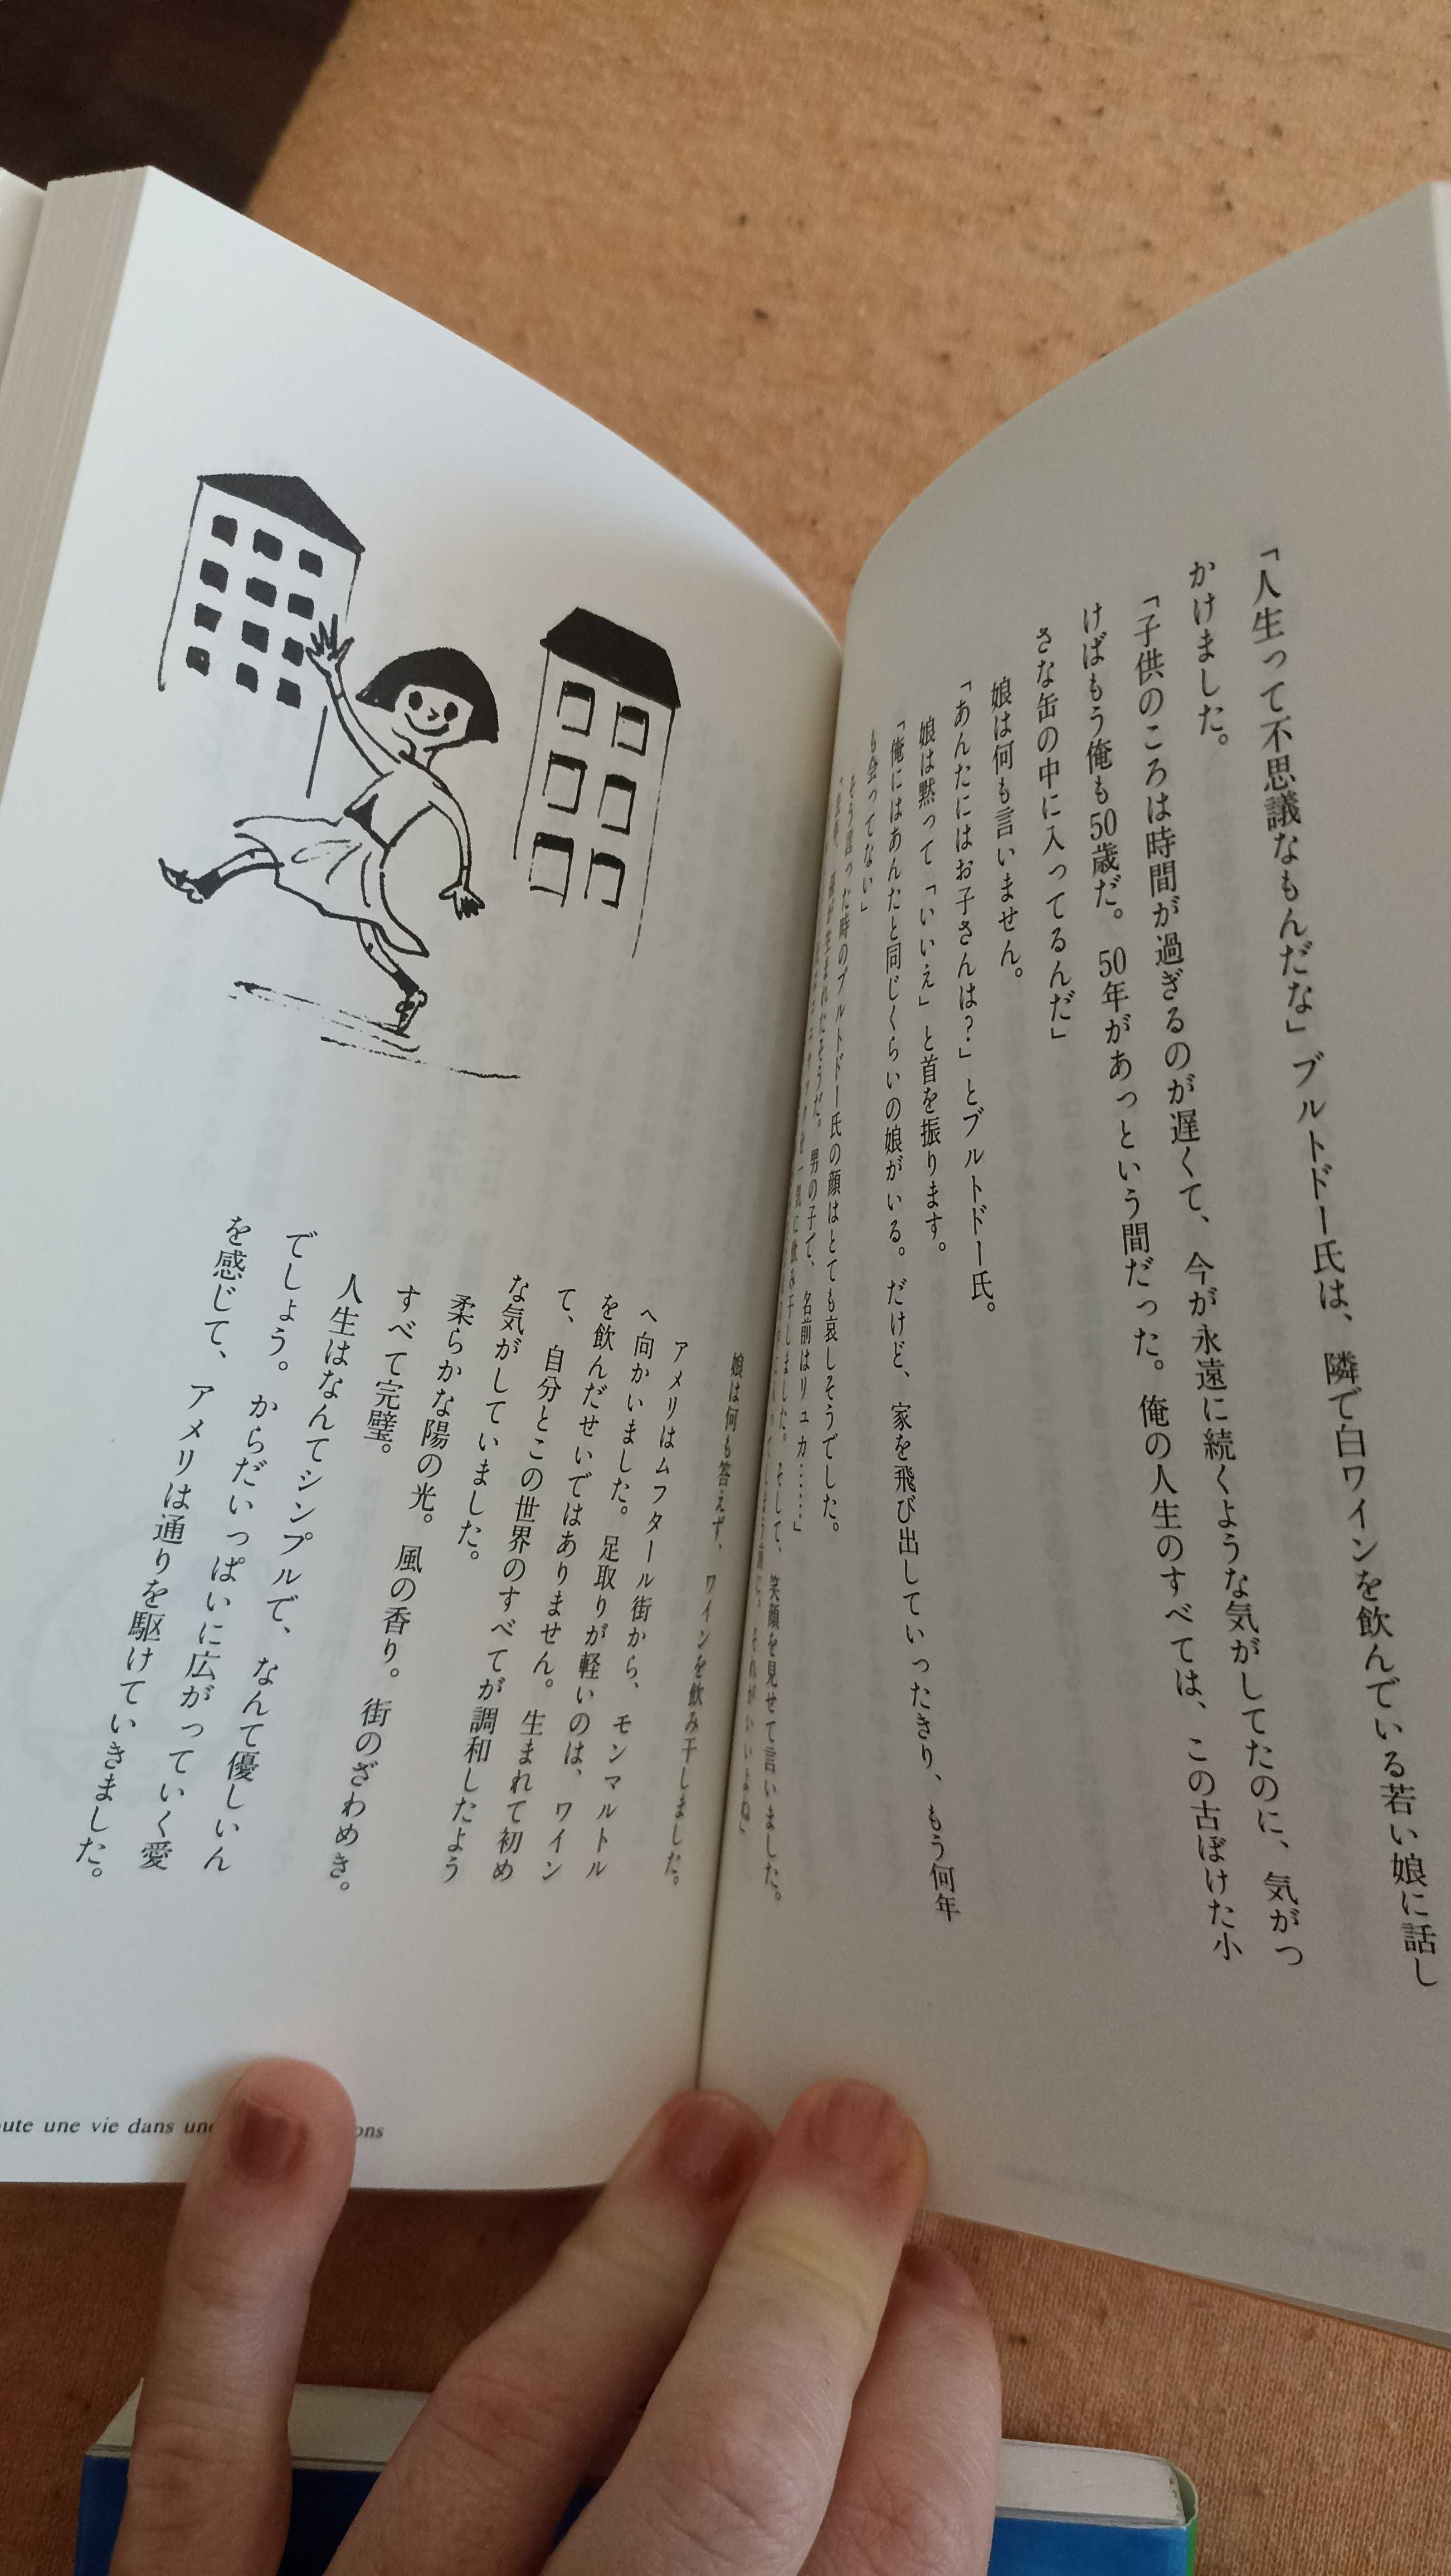 「人生って不思議なもんだな」ブルトドー氏は、隣で白ワインを飲んでいる若い娘に話し
かけました。
「子供のころは時間が過ぎるのが遅くて、今が永遠に続くような気がしてたのに、気がつ
けばもう俺も50歳だ。50年があっという間だった。俺の人生のすべては、この古ぼけた小
さな缶の中に入ってるんだ」
娘は何も言いません。
「あんたにはお子さんは？」とブルトドー氏。
娘は黙って「いいえ」と首を振ります。
「俺にはあんたと同じくらいの娘がいる。だけど、家を飛び出していったきり、もう何年
も会ってない」
そう言った時のブルトドー氏の顔はとても哀しそうでした。
生まれたそうだ。男の子で、名前はリュカ……」
一気に飲み干しました。そして、笑顔を見せて言いました。
娘は何も答えず、ワインを飲み干しました。
アメリはムフタール街から、モンマルトル
へ向かいました。足取りが軽いのは、ワイン
を飲んだせいではありません。生まれて初め
て、自分とこの世界のすべてが調和したよう
な気がしていました。
柔らかな陽の光。風の香り。街のざわめき。
すべて完璧。
人生はなんてシンプルで、なんて優しいん
でしょう。からだいっぱいに広がっていく愛
を感じて、アメリは通りを駆けていきました。
une vie dans